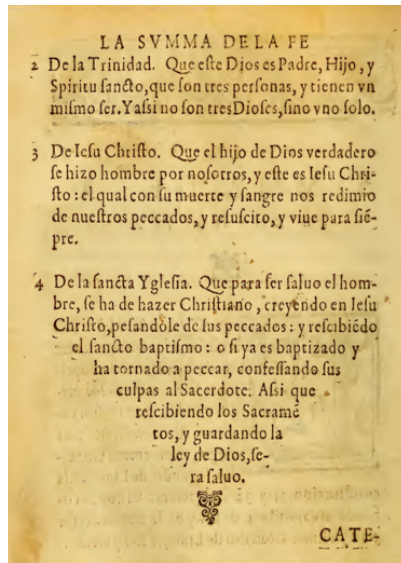 LA SVMMA DE LA FE
2 De la Trinidad. Que eſte Dios es Padre, Hijo, y
Spiritu ſancto, que ſon tres perſonas, y tienen vn
miſmo ſer. Y aſsi no ſon tres Dioſes, ſino vno ſolo.
3 De Ieſu Chriſto. Que el hijo de Dios verdadero
ſe hizo hombre por noſotros, y eſte es Ieſu Chri-
ſto: el qual con ſu muerte y ſangre nos redimio
de nueſtros peccados, y reſuſcito, y viue para ſié-
pre.
4 De la ſancta Ygleſia. Que para ſer ſaluo el hom-
bre, ſe ha de hazer Chriſtiano, creyendo en Ieſu
Chriſto, peſandole de ſus peccados: y reſcibiédo
el ſancto baptiſmo: o ſi ya es baptizado y
ha tornado a peccar, confeſſando ſus
culpas al Sacerdote. Aſsi que
reſcibiendo los Sacramé
tos, y guardando la
ley de Dios, ſe-
ra ſaluo.
CATE-